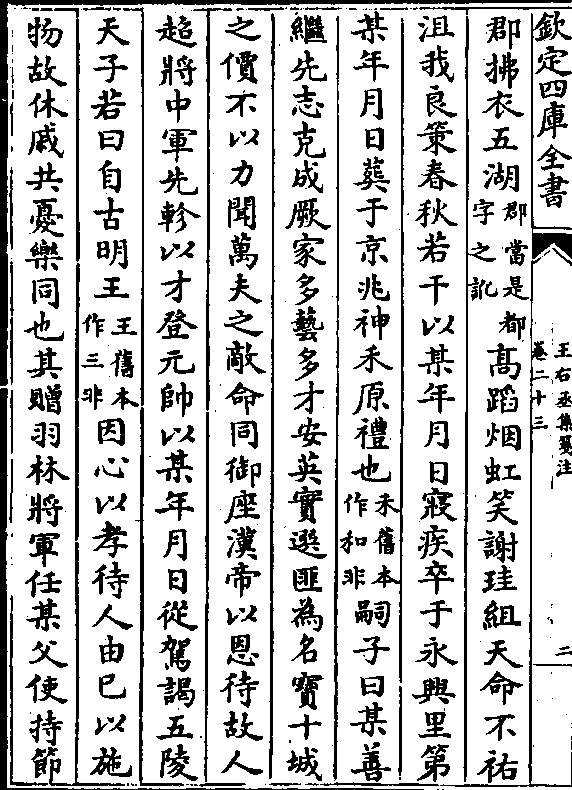 欽定四庫全書
王右丞集箋注
卷二十三
二
郡拂衣五湖郡當是都字之訛高蹈烟虹笑謝珪組天命不祐
沮我良筞春秋若干以某年月日寢疾卒于永興里第
某年月日葬于京兆神禾原禮也禾舊本作和非嗣子曰某善
繼先志克成厥家多藝多才安英實選匪為名寶十城
之價不以力聞萬夫之敵命同御座漢帝以恩待故人
超將中軍先軫以才登元帥以某年月日從駕謁五陵
天子若曰自古明王王舊本作三非因心以孝待人由已以施
物故休戚共憂樂同也其贈羽林將軍任某父使持節